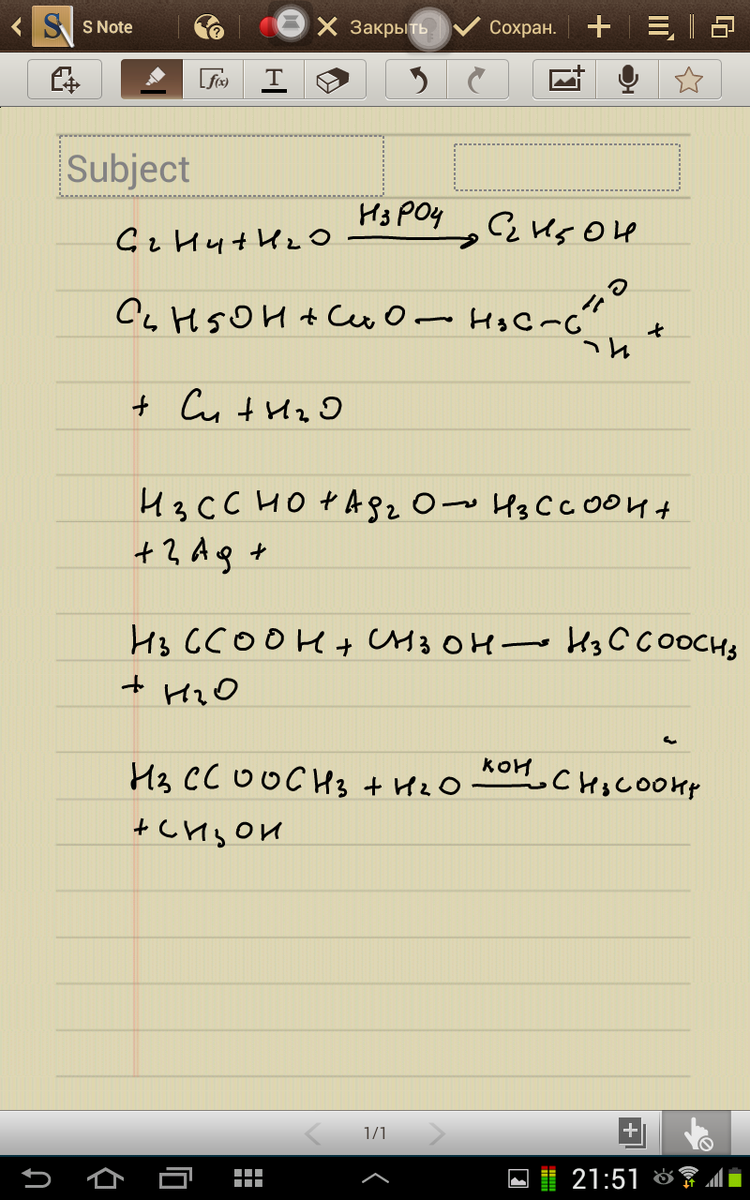 S Note
Закрыть
Сохран.
f(x)
T
Subject
C2H4+H2O H3PO4 → C2H5OH
C2H5OH + CuO → H3C-C =O -H +
+ Cu + H2O
H3CCHO + Ag2O → H3CCOOH +
+ 2Ag +
H3CCOOH + CH3OH → H3CCOOCH3
+ H2O
H3CCOOCH3 + H2O KOH → CH3COOH+
+ CH3OH
1/1
21:51